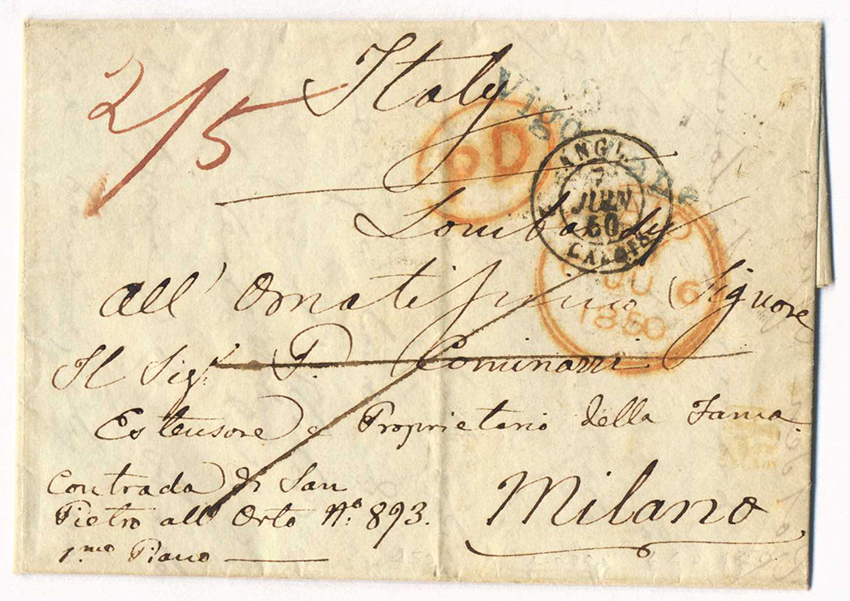 Italy
2/5
Vigo
PD
ANGL.
7
JUIN
50
CALAIS
Lombardy
JU 6
1850
all' Ornatissimo Signore
Il Sigr. P. Cominazzi
Estensore e Proprietario della Fama.
Contrada di San
Pietro all' Orto No. 893.
1.mo Piano
Milano